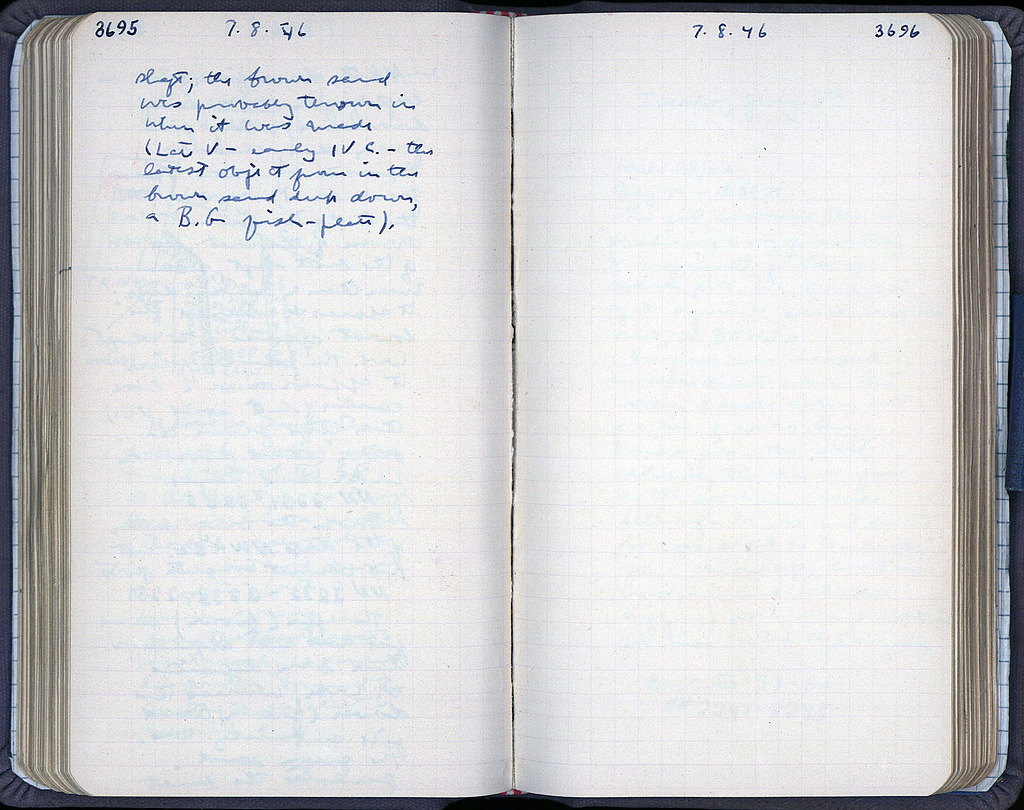 3695 7. 8. 46
shaft; the brown sand
was probably thrown in
when it was made
(Late V – early IV C. – the
latest object from in the
brown sand deep down,
a B.G fish-plate).
7. 8. 46 3696